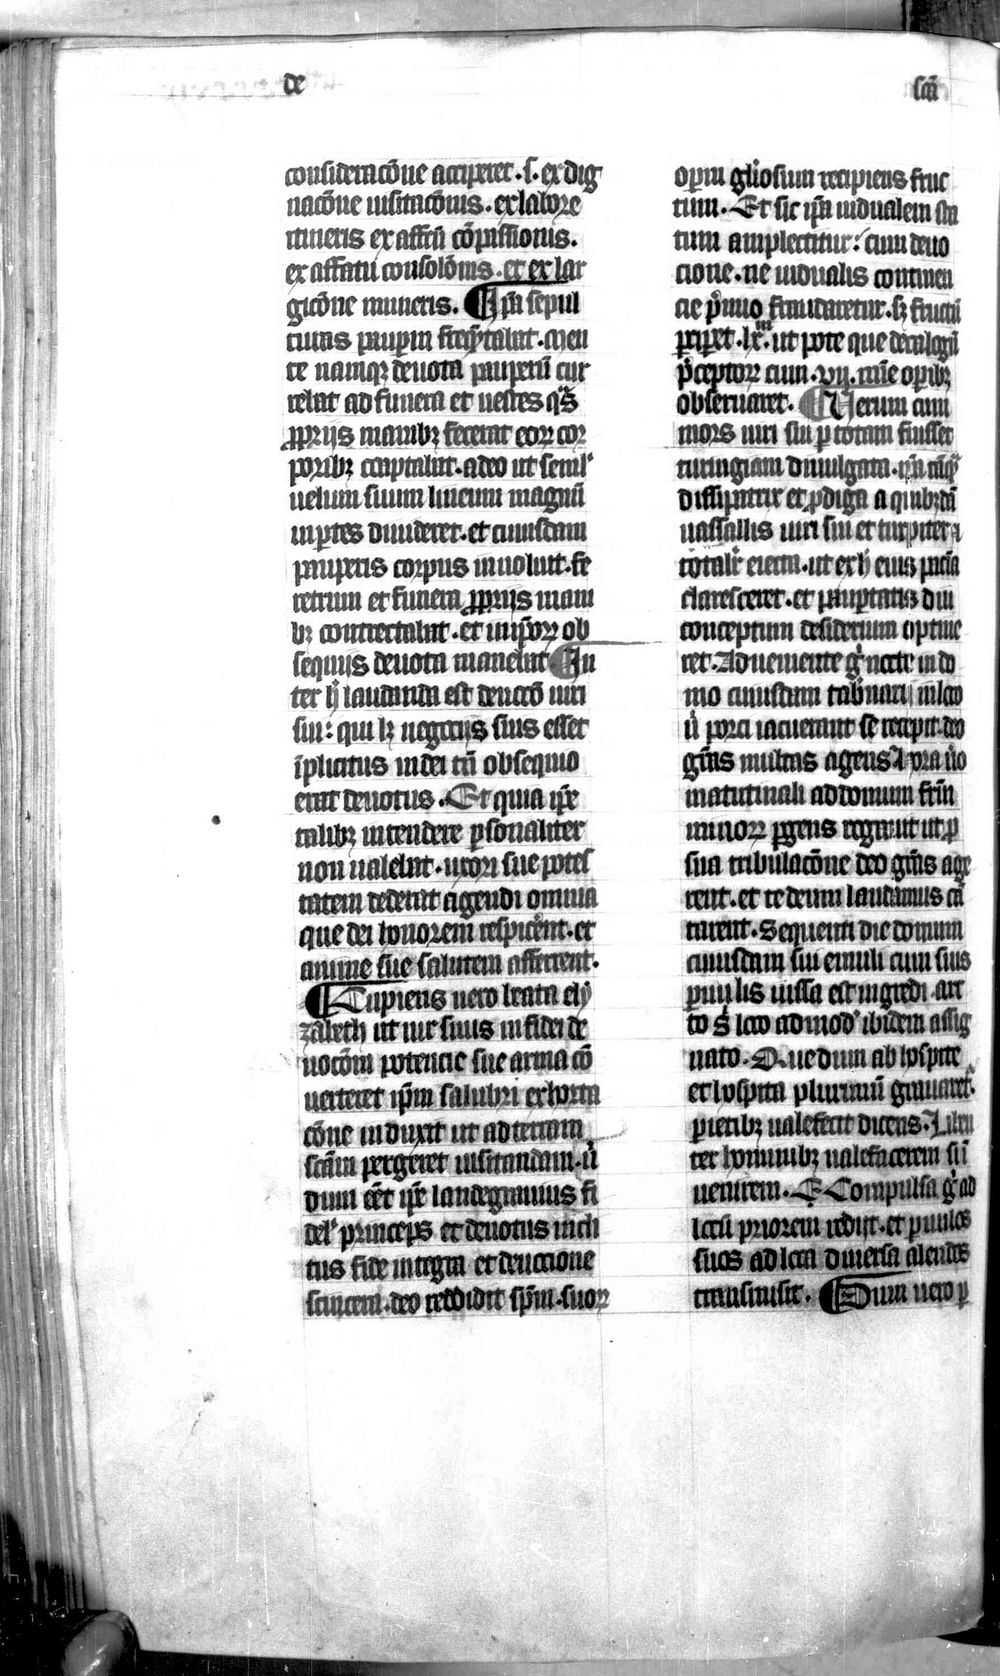 de
sc̄i
consideracōne acciperet · s · ex dig
nacōne uisitacōnis · ex labore
itineris ex affc̄u cōpassionis ·
ex affatu consolōnis · et ex lar
gicōne muneris · Ip̄a sepul
turas paup̄m freq̄ntabat · cum
te namqꝫ deuota pauperū cur
rebat ad funera et uestes q̄s
ꝓprijs manibꝫ fecerat eoꝝ cor
poribꝫ coaptabat · adeo ut semel
uelum suum lineum magnū
in ꝑtes diuideret · et cuiusdam
pauperis corpus inuoluit · fe
retrum et funera ꝓprijs mani
bꝫ contrectabat · et in ip̄oꝝ ob
sequijs deuota manebat In
ter h̄ laudanda est deuocō uiri
sui : qui lꝫ negocijs suis esset
īplicatus in dei tn̄ obsequio
erat deuotus · Et quia ip̄e
talibꝫ intendere ꝑsonaliter
non ualebat · uxori sue potes
tatem dederat agendi omnia
que dei honorem respicerent · et
anime sue salutem afferrent ·
Cupiens uero beata ely
zabeth ut uir suus in fidei de
uocōm potencie sue arma cō
uerteret ip̄m salubri exhorta
cōne induxit ut ad terram
sc̄am pergeret uisitandam · u̇
dum eēt ip̄e landegrauius fi
delꝰ princeps et deuotus incli
tus fide integra et deuocione
sincera · deo reddidit sp̄m · suoꝝ
operū gl̄iosum recipiens fruc
tum · Et sic ip̄a uidualem sta
tum amplectitur : cum deuo
cione · ne uidualis continen
cie p̄mio fraudaretur · sꝫ fructū
ꝑciꝑet · lxᵐ · ut pote que decalogū
p̄ceptoꝝ cum · vij · mīe oꝑibꝫ
obseruaret · Uerum cum
mors uiri sui ꝑ totam fuisset
turingiam diuulgata · ip̄a tāqᷓ
dissipatrix et ꝓdiga a quibꝫdā
uassallis uiri sui et turpiter ⁊
totalr̄ eiecta · ut ex h̄ eius pacia
claresceret · et pauꝑtatis diu
conceptum desiderium optine
ret · Adueniente g̊ nocte in do
mo cuiusdam tab̄narij in loco
u̇ porci iacuerant se recepit · deo
gr̄as multas agens Hora u̇o
matutinali ad domum fr̄m
minoꝝ ꝑgens rogauit ut ꝓ
sua tribulacōne deo gr̄as age
rent · et te deum laudamus cā
tarent · Sequenti die domum
cuiusdam sui emuli cum suis
paruulis iussa est ingredi · arc
to s̄ loco ad mod̄ ibidem assig
nato · Que dum ab hospite
et hospita plurimū grauaret ·
parietibꝫ ualefecit dicens · Liben
ter hominibꝫ ualefacerem si ī
uenirem · Compulsa g̊ ad
locū priorem redijt · et paruulos
suos ad loca diuersa alendos
transmisit · Dum uero ꝑ